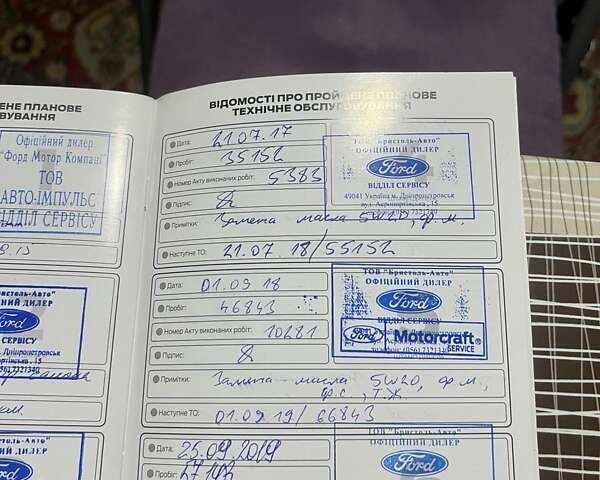 ЕНЕ ПЛАНОВЕ
ВУВАННЯ
Офіційний дилер
"Форд Мотор Компані
ТОВ
АВТО-ІМПУЛЬС
ВІДДІЛ СЕРВІСУ
ВІДОМОСТІ ПРО ПРОЙДЕНЕ ПЛАНОВЕ
ТЕХНІЧНЕ ОБСЛУГОВУВАННЯ
Дата: 21.07.17
Пробіг: 35152
Номер Акту виконаних робіт: 5383
Підпис:
Примітки: Замена масла 5W20, ф.м.
Наступне ТО: 21.07.18/55152
ТОВ "Бристоль-Авто"
ОФІЦІЙНИЙ ДИЛЕР
Ford
ВІДДІЛ СЕРВІСУ
49041 Україна м. Дніпропетровськ
Дата: 01.09.18
Пробіг: 46843
Номер Акту виконаних робіт: 10281
Підпис:
Примітки: Замена масла 5W20, ф.м.,
ф.с., т.ж.
Наступне ТО: 01.09.19/66843
ТОВ "Бристоль-Авто"
ОФІЦІЙНИЙ ДИЛЕР
Ford
ВІДДІЛ СЕРВІСУ
Ford Motorcraft®
SERVICE
Дата: 25.09.2019
Пробіг:
ТОВ "Бристоль-Авто"
ОФІЦІЙНИЙ ДИЛЕР
Ford
"Бристоль-Авто"
ЙНИЙ ДИЛЕР
Ford
СЕРВІСУ
Дніпропетровськ
"Бристоль-Авто"
ИЙ ДИЛЕР